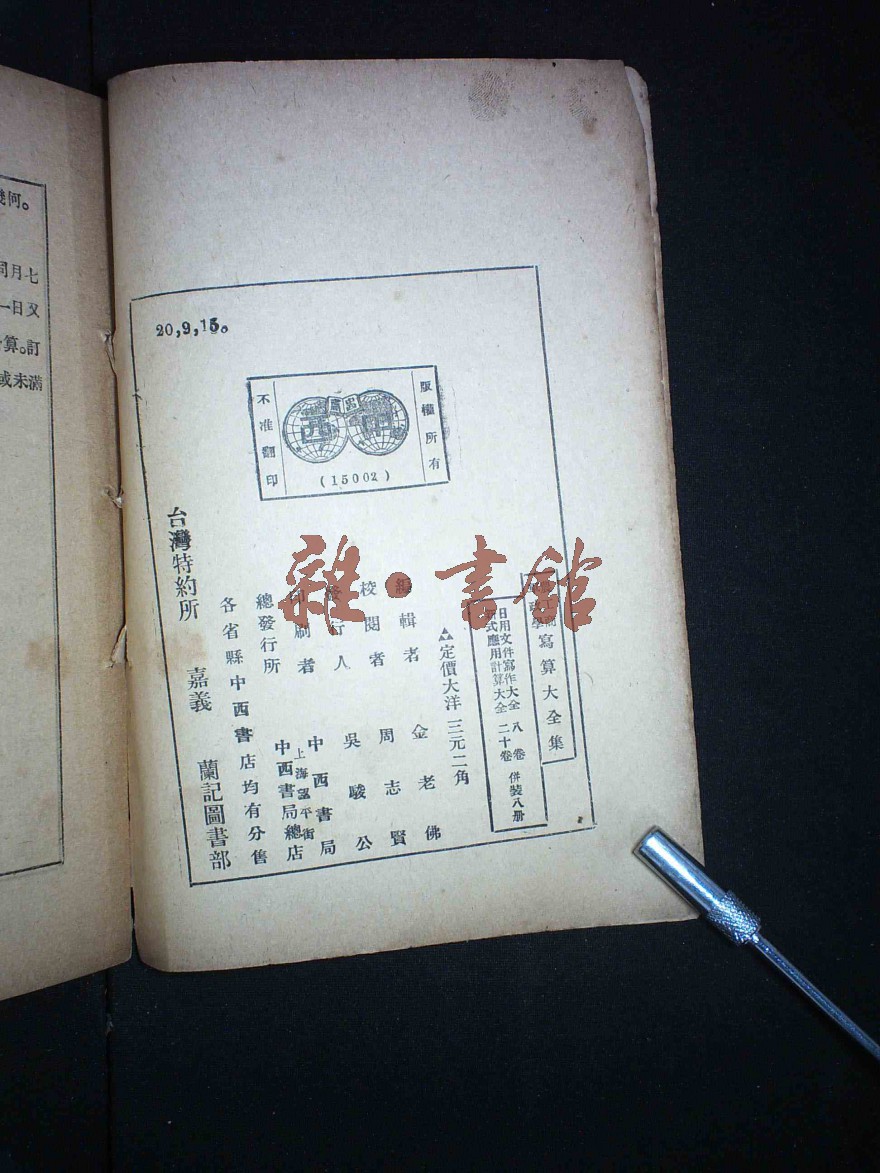 幾何。
七月同
又日一
算。訂
滿未或
20,9,15。
版權所有
不准翻印
(15002)
寫算大全集
日用文件寫作大全 八卷
新式應用計算大全 二十卷
併裝八册
定價大洋三元二角
編輯者 金老佛
校閱者 周志賢
發行人 吳駿公
印刷者 中西書局
總發行所 上海望平街 中西書局總店
各省縣中西書店均有分售
台灣特約所 嘉義 蘭記圖書部
雜·書館